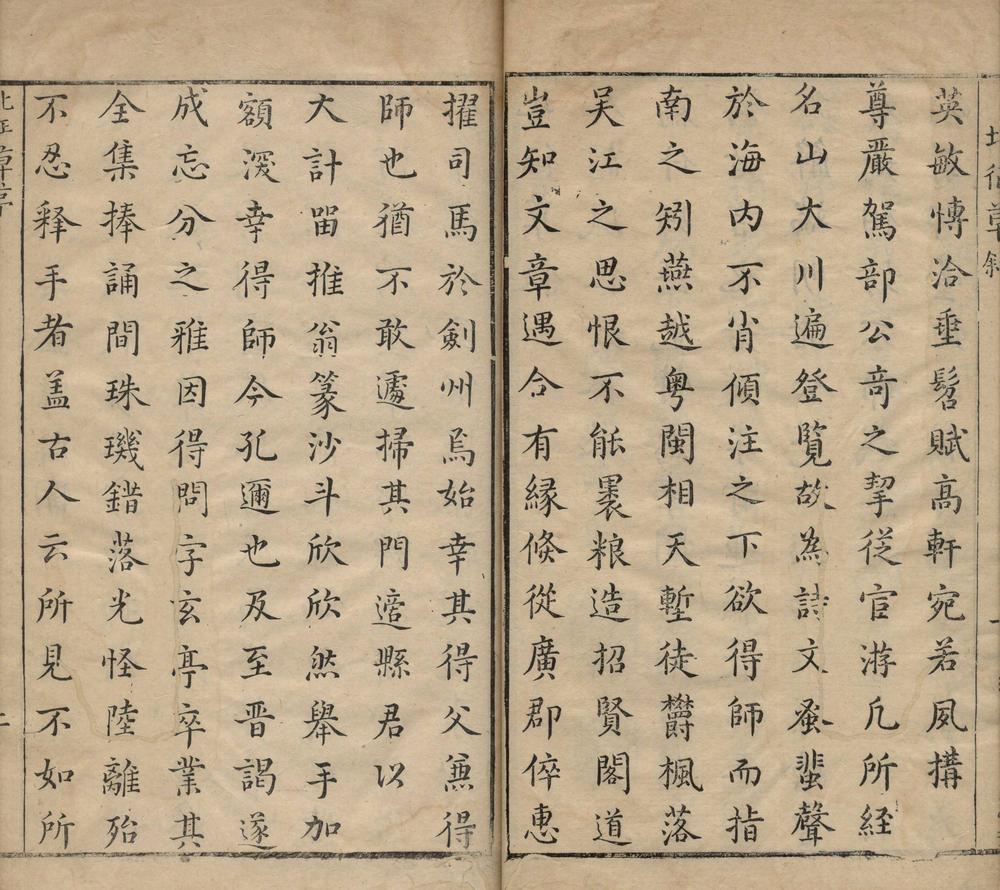 英敏博洽垂髫賦高軒宛若夙搆
尊嚴駕部公竒之挈從官游凡所經
名山大川遍登覽故為詩文蚤蜚聲
於海内不肖傾注之下欲得師而指
南之矧燕越粤閩相天塹徒欝楓落
吴江之思恨不能褁粮造招賢閣道
豈知文章遇合有緣倐從廣郡倅惠
擢司馬於劍州烏始幸其得父兼得
師也猶不敢遽掃其門適縣君以
大計畱推翁篆沙斗欣欣然舉手加
額深幸得師今孔邇也及至晋謁遂
成忘分之雅因得問字玄亭卒業其
全集捧誦間珠璣錯落光怪陸離殆
不忍釋手者盖古人云所見不如所